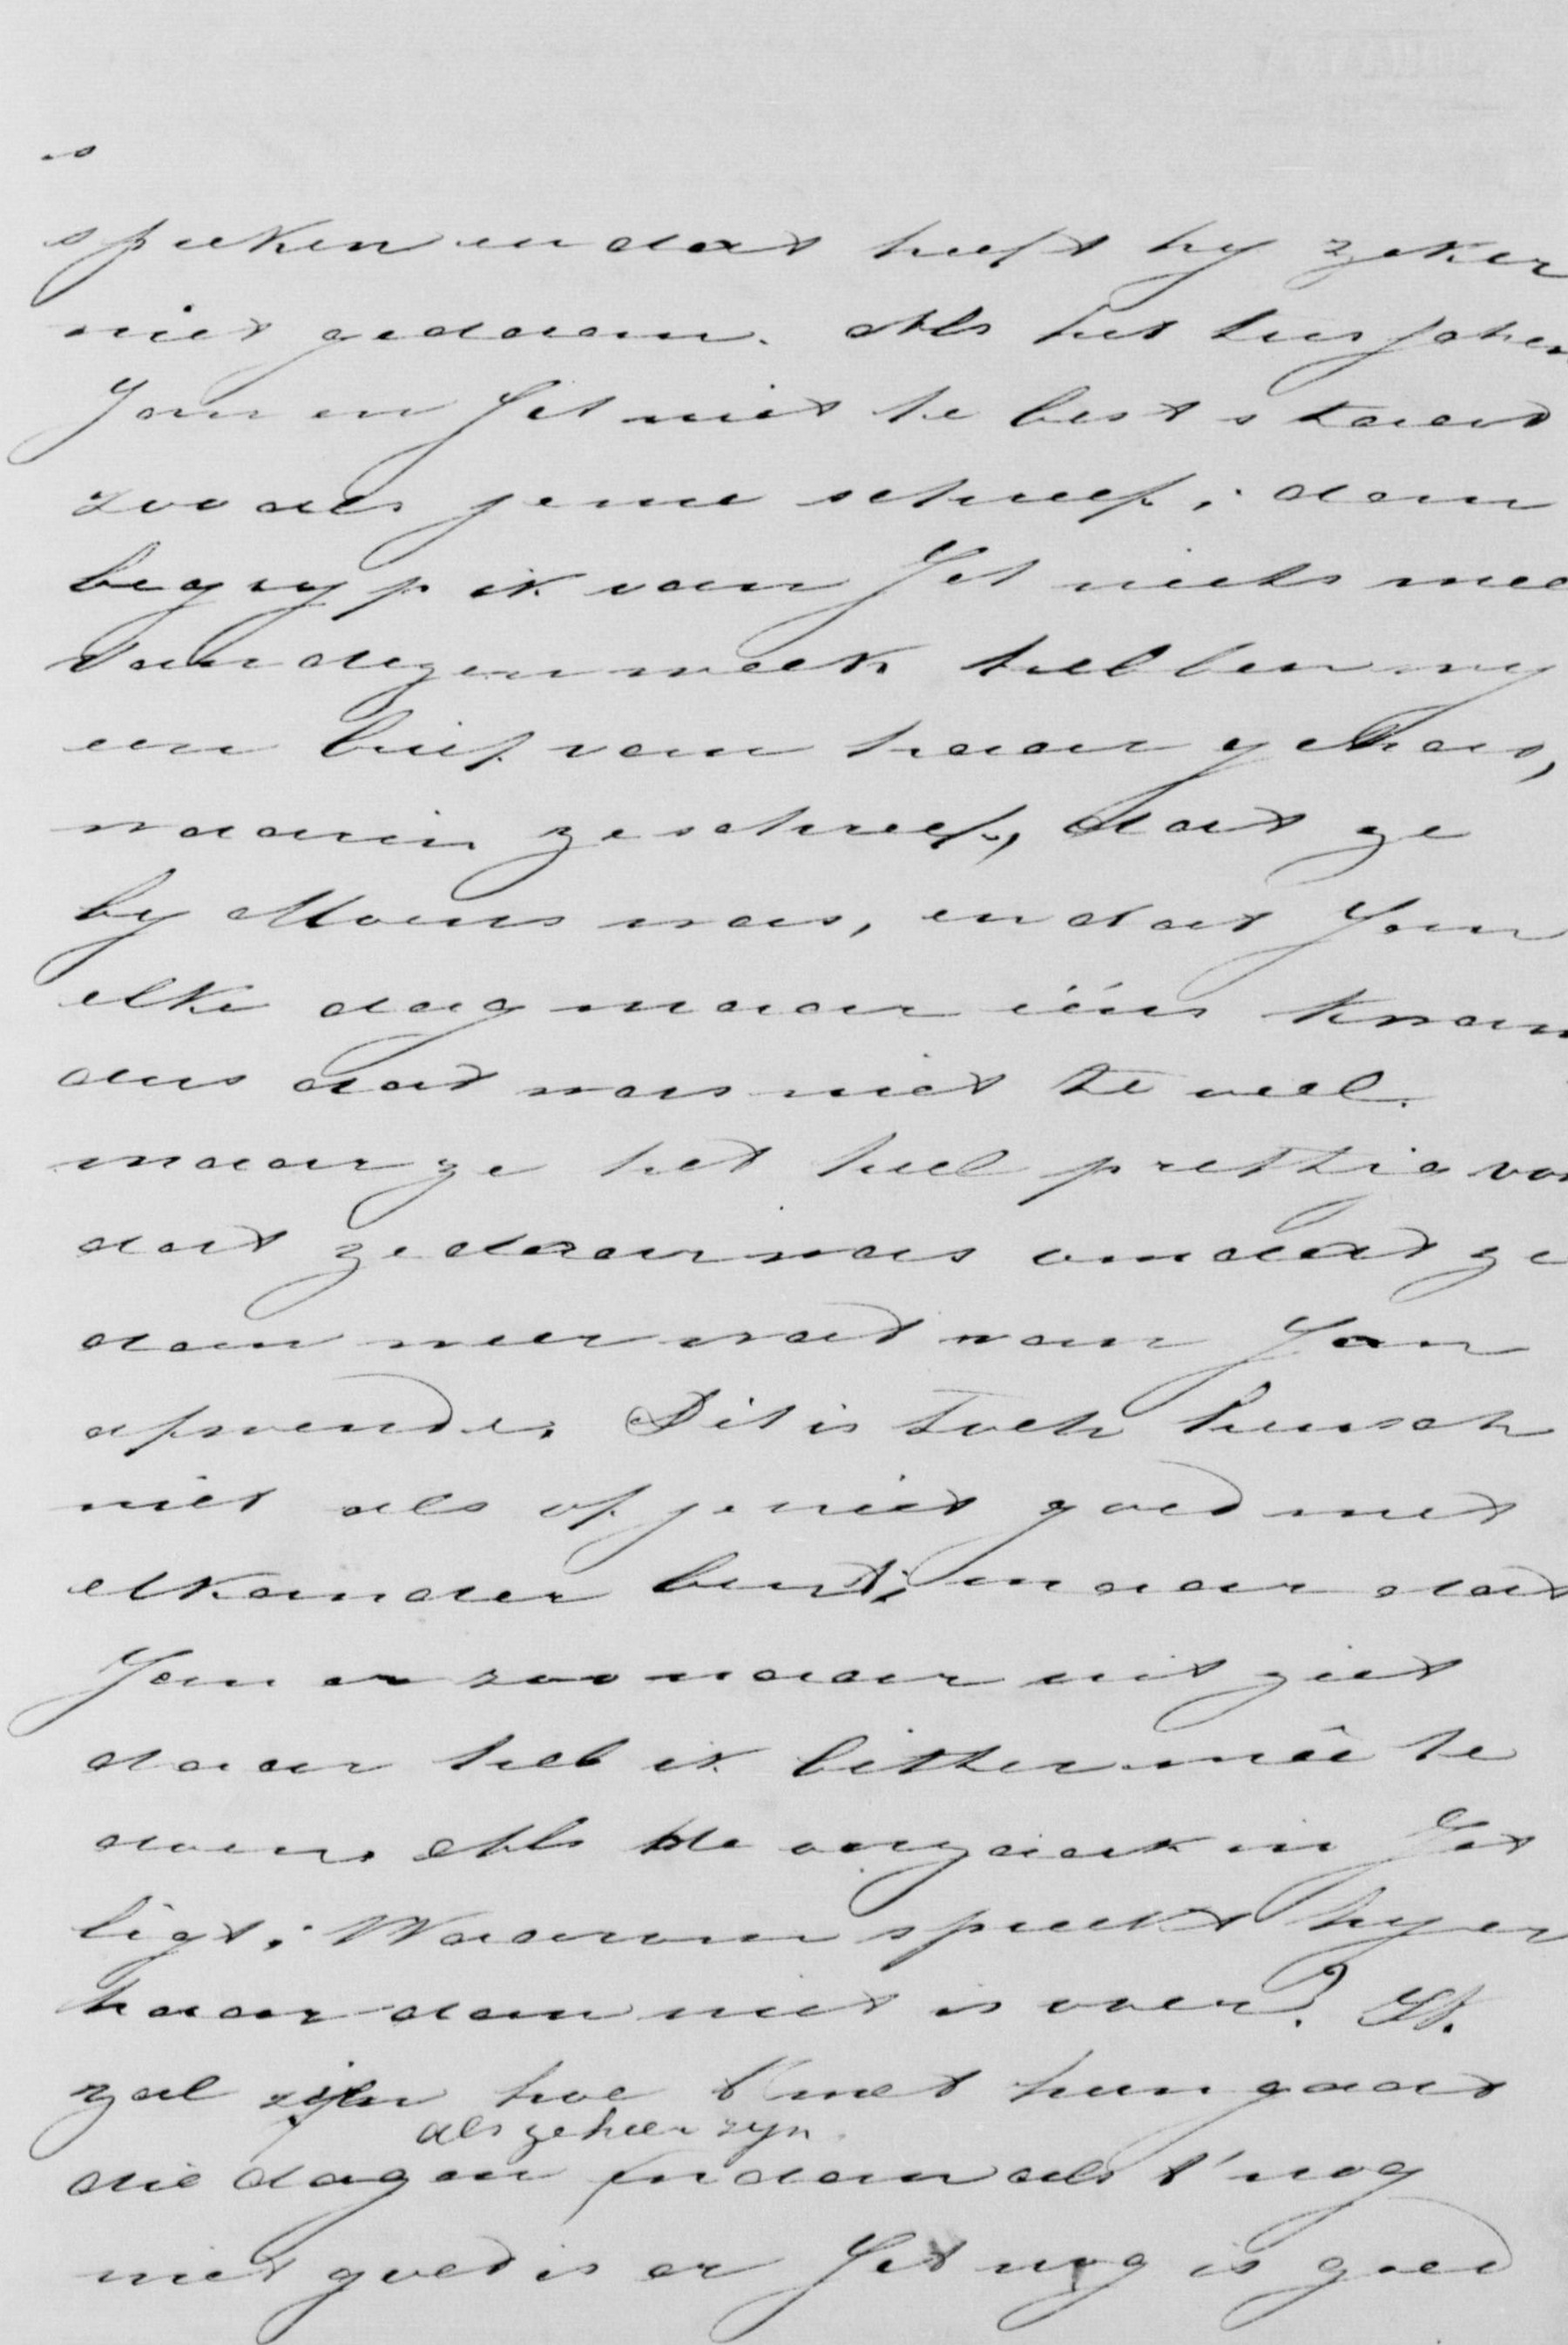 is
spreken en dat heeft hy zeker
niet gedaan. Als het tusschen
Jan en Jet niet te best staat
zooals je me schreef; dan
begryp ik van Jet niets mee
Van dezen week hebben wy
een brief van haar gehad,
waarin ze schreef, dat ze
by Moens was, en dat Jan
elke dag maar ééns kwam
dus dat was niet te veel.
maar ze het heel prettig von
dat ze daar was omdat ze
dan weer wat van Jan
afwende. Dit is toch heusch
niet als of je niet goed met
elkander bent; maar dat
Jan er zoo naar uit ziet
daar heb ik bitter meê te
doen. Als de oorzaak in Jet
ligt; Waarom spreekt hy er
haar dan niet is over? Ik.
zal zijen hoe t met hun gaat
als ze hier zyn
die dagen en dan als t' nog
niet goed is er Jet nog is goed